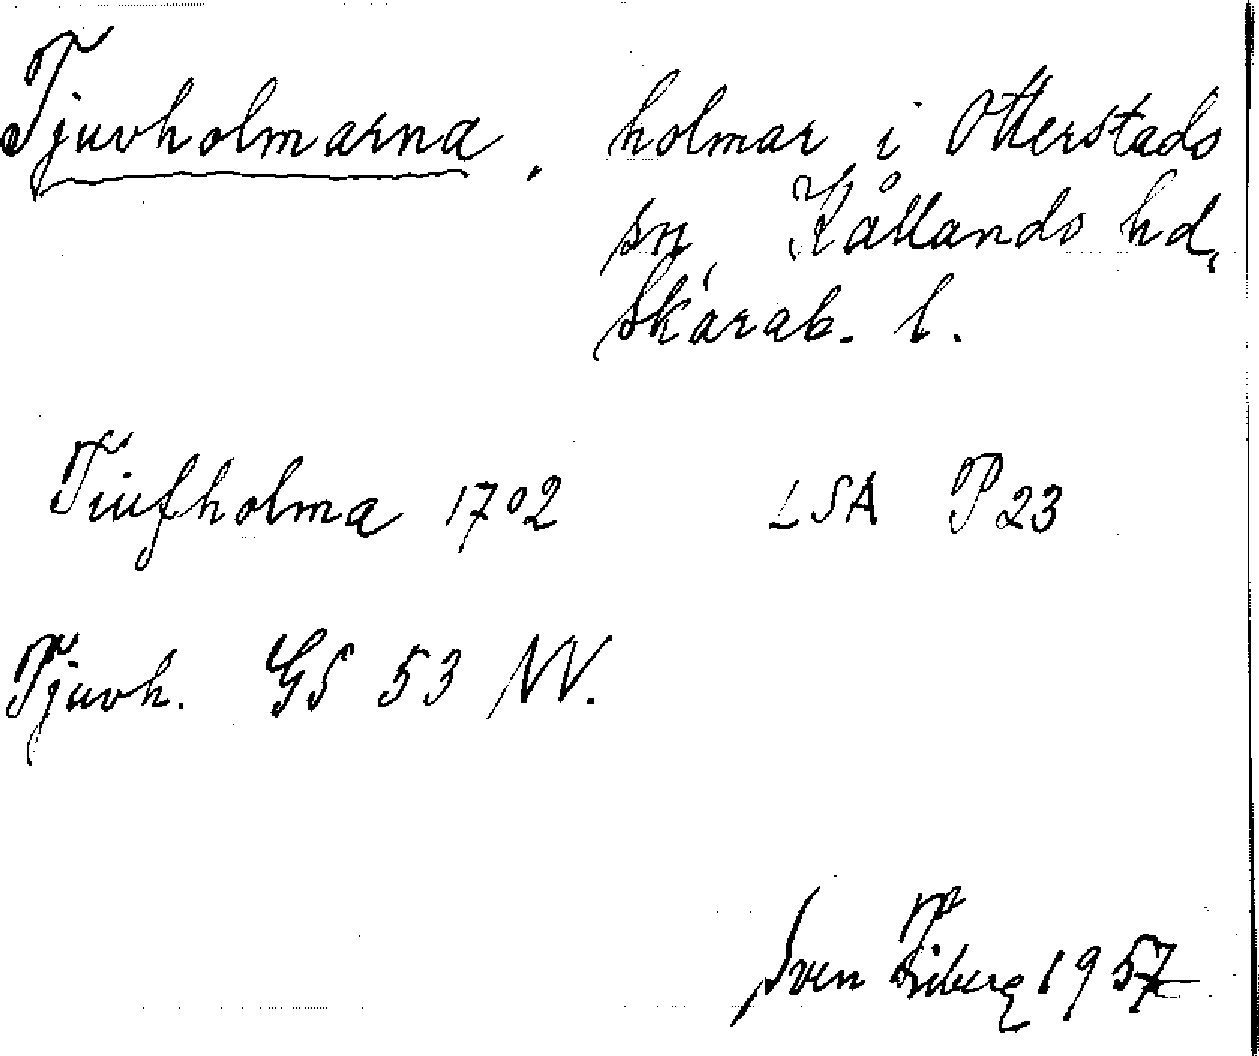 Tjuvholmarna, holmar i Otterstads
sn, Kållands hd,
Skarab. l.
Tiufholma 1702 LSA P23
Tjuvh. GS 53 NV.
Sven Friberg 1957